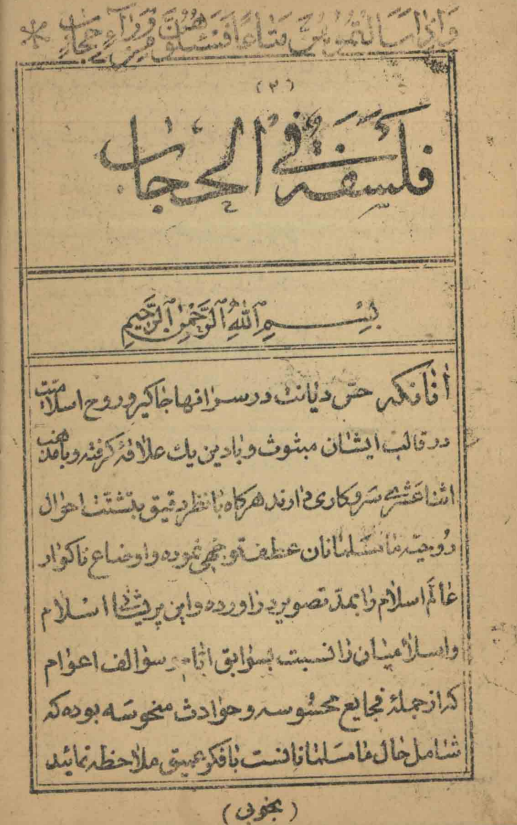 وَاِذٰا سَاَلْتُمُوهُنَّ مَتٰاعًا فَسْئَلُوهُنَّ مِنْ وَرٰآءِ حِجٰابٍ *
(٢)
فَلسَفَةٌ فی الحِجٰاب
بِسْمِ ٱللّٰهِ ٱلرَّحْمٰنِ ٱلرَّحِيمِ
آقانکه حسّ دیانت در سر آنها جاگیر و روح اسلامیت
در قالب ایشان مبثوث و با دین یك علاقۀ گرفته و با مذهب
اثنا عشری سر و کاری دارند هرگاه با نظر دقیق بتشتت احوال
روحیّه ما مسلمانان عطف توجّهی نموده و اوضاع ناگوار
عالم اسلام را بمدّ تصویر در آورده و این پریشانی اسلام
و اسلامیان را نسبت بسوابق ایّام و سؤالف اعوام
که از جملۀ فجایع محسوسه و حوادث منحوسه بوده که
شامل حال ما مسلمانانست با فکر عمیق ملاحظه نمائید
(بخوبی)